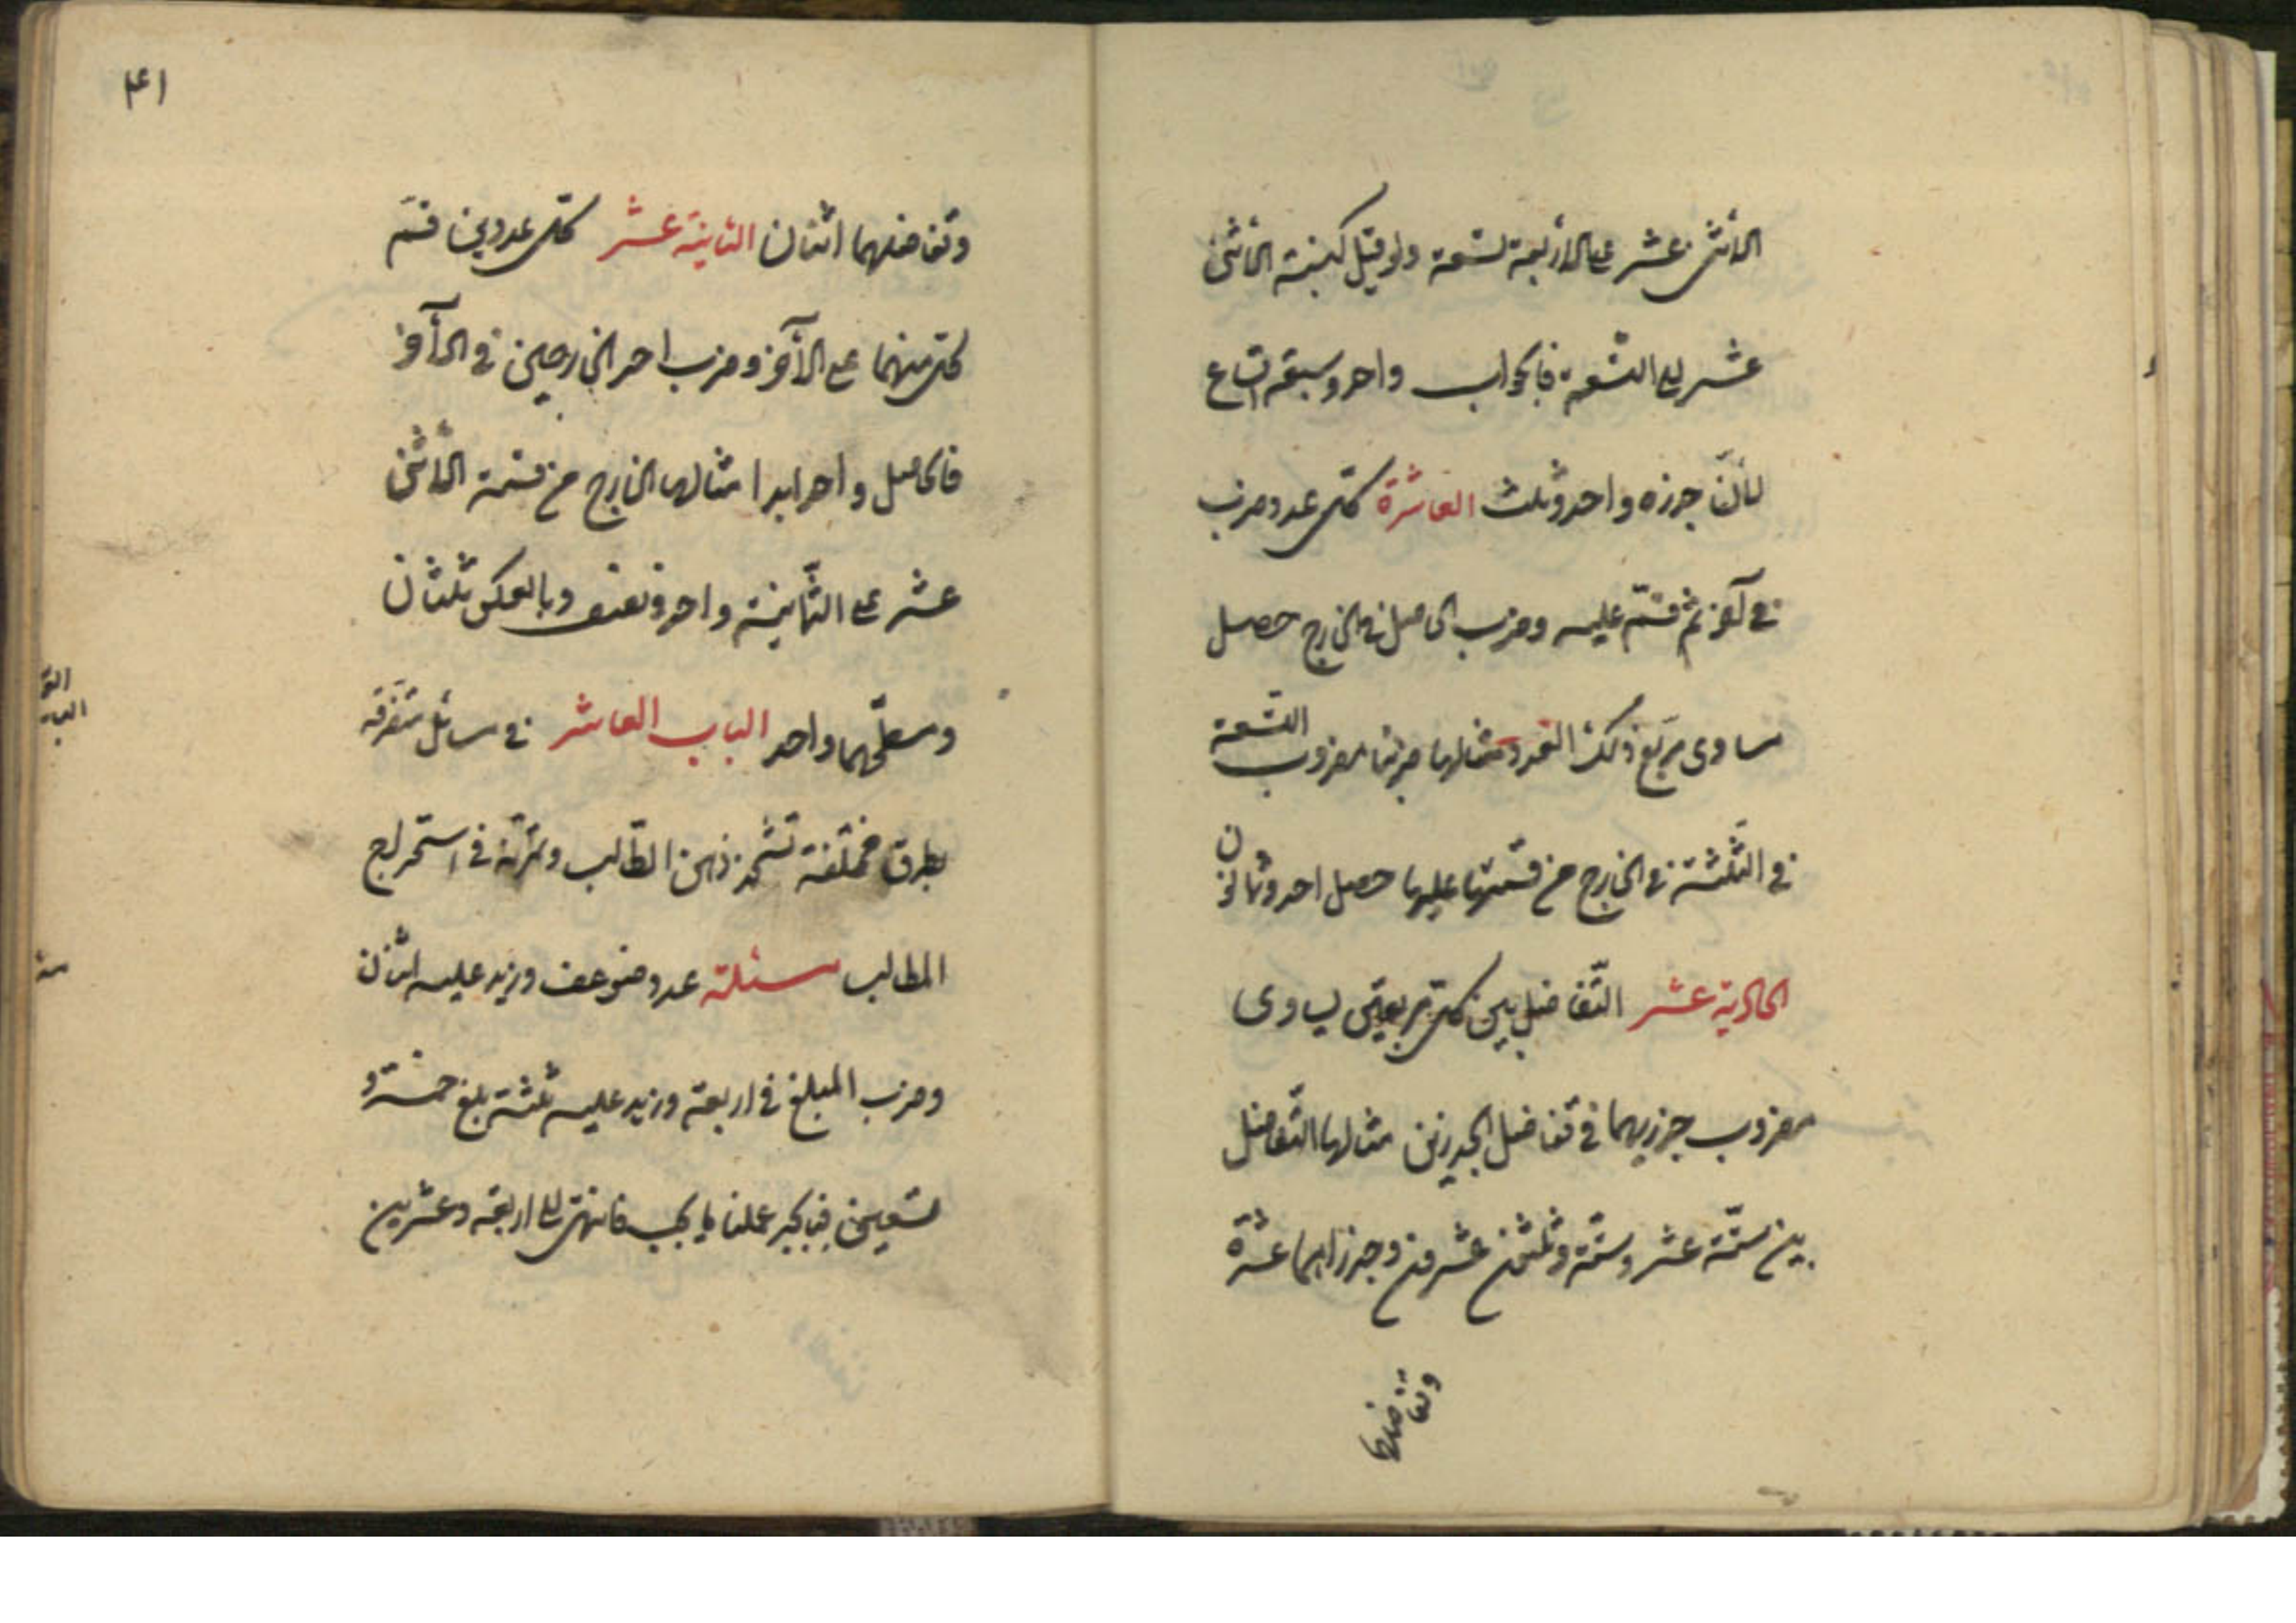 الاثنى عشر على الاربعة تسعة ولو قيل كنسبة الاثنى
عشر الى التسعة فالجواب واحد وسبعة اتساع
لانّ جذره واحد وثلث العاشرة كلّ عدد ضرب
في آخر ثم قسّم عليه وضرب الحاصل في الخارج حصل
مساوى مربّع ذلك العدد مثالها ضربنا مضروب التسعة
في الثلثة في الخارج من قسمتها عليها حصل احد وثمانون
الحادية عشر التّفاضل بين كلّ مربعين يساوى
مضروب جذريهما في تفاضل الجذرين مثالها التّفاضل
بين ستّة عشر وستّة وثلثين عشرون وجذراهما عشرة
وتفاضلهما
۴۱
وتفاضلهما اثنان الثانية عشر كلّ عددين قسّم
كلّ منهما على الآخر وضرب احد الخارجين في الآخر
فالحاصل واحد ابدا مثالها الخارج من قسمة الاثنى
عشر على الثّمانية واحد ونصف وبالعكس ثلثان
ومسطّحهما واحد الباب العاشر في مسائل متفرّقه
بطرق مختلفة تشحذ ذهن الطّالب وتمرّنه في استخراج
المطالب مسئلة عدد ضوعف وزيد عليه اثنان
وضرب المبلغ في اربعة وزيد عليه ثلثة بلغ خمسة و
تسعين فبالجبر عملنا ما يجب فانتهى الى اربعة وعشرين